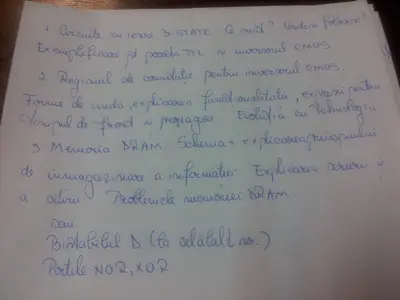 1. Circuite cu ieșire 3-STATE. Ce sunt? Unde se folosesc?
Exemplificare pt poarta TTL și inversorul CMOS.
2. Regimul de comutație pentru inversorul CMOS.
Forme de undă, explicarea funcționalității, expresii pentru
timpul de front și propagare. Evoluția cu tehnologia
3 Memoria DRAM. Schema + explicarea principiului
de înmagazinare a informației. Explicarea scrierii și
a citirii. Problemele memoriei DRAM
sau
Bistabilul D (la celălalt nr.)
Porțile NOR, XOR